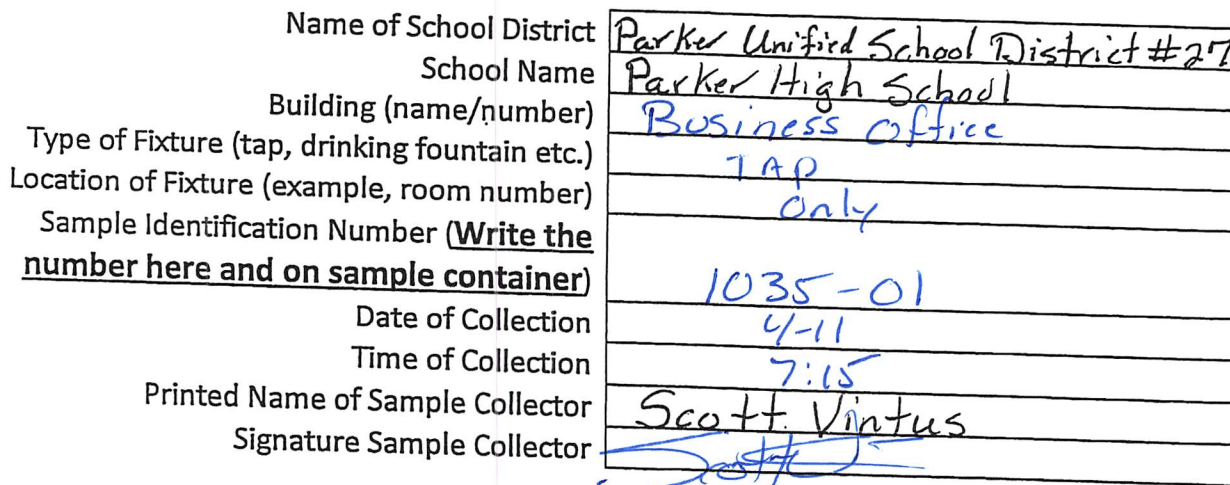 Name of School District Parker Unified School District #27
School Name Parker High School
Building (name/number) Business Office
Type of Fixture (tap, drinking fountain etc.) TAP
Location of Fixture (example, room number) Only
Sample Identification Number (Write the
number here and on sample container) 1035-01
Date of Collection 4-11
Time of Collection 7:15
Printed Name of Sample Collector Scott Vintus
Signature Sample Collector